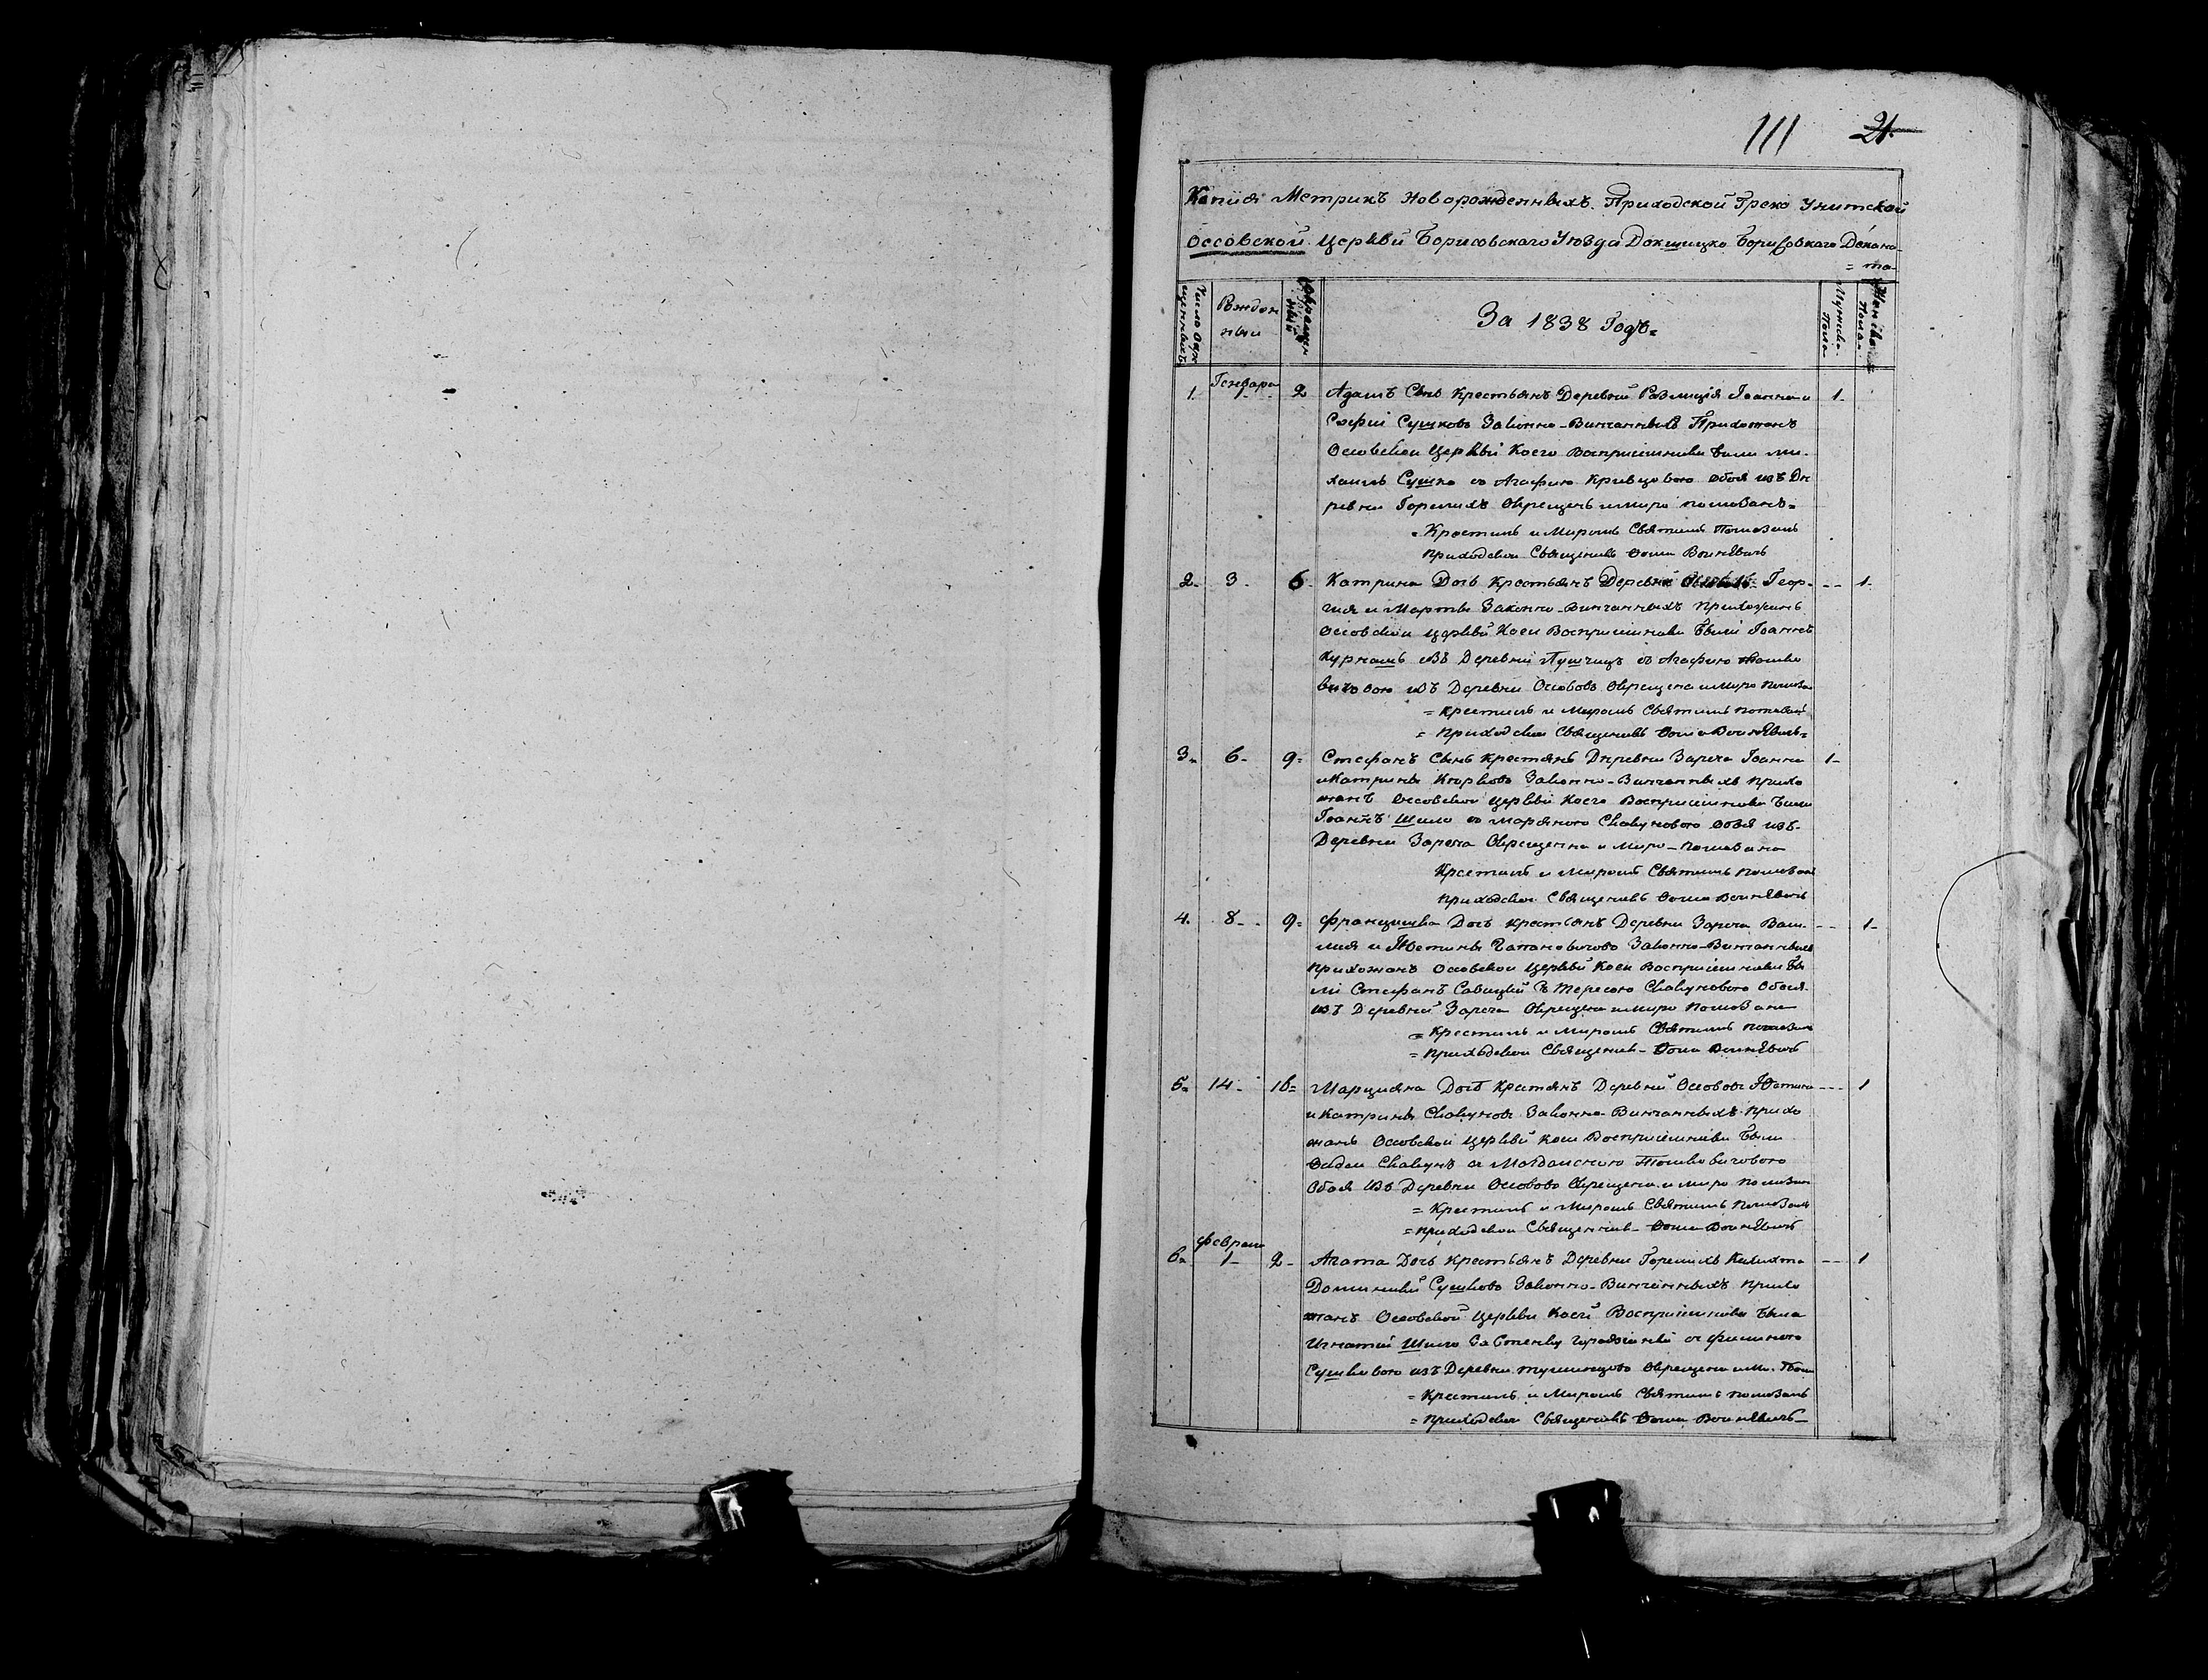 111 21.
Копия Метрикъ Новорожденныхъ Приходской Греко Унитской
Оссовской Церквй Борисовскаго Уѣзда Докшицко Борисовскаго Декана
= та
Число Окрещенныхъ
Рожденныи
Окрещенныи
За 1838 Годъ=
Мужска Пола
Женска Пола
1. Генвара 1 2 Адамъ Сынъ Крестьянъ Деревни Іоанна и 1.
Софіи Сушковъ Законно-Винчанныхъ Прихожанъ
Оссовской Церквй Коего Воспріемники Были Ми-
хаилъ Сушко съ Агафию Кривцовою обоя изъ Де
ревни Горелихъ Окрещенъ и Миро помозанъ=
=Крестилъ и Миромъ Святимъ Помозалъ
Приходской Священикъ Фома
2. 3. 6. Катрина Дочь Крестьянъ Деревни Геор- -- 1.
гия и Марты Законно-Винчанныхъ Прихожанъ
Оссовской Церквй Коеи Воспріемники Были Іоаннъ
изъ Деревни съ Агафию
изъ Деревни Оссововъ Окрещена и Миро Помоза
= Крестилъ и Миромъ Святимъ помозалъ
= Приходской Священикъ Фома
3. 6. 9= Стефанъ Сынъ Крестянъ Деревни Зареча Іоанна 1-
и Катрины Законно-Винчанныхъ Прихо
жанъ Оссовской Церквй Коего Воспріемники Были
Іоаннъ Шило съ Маряною Скакуновою обоя изъ-
Деревни Зареча Окрещенна и Миро-помозана
Крестилъ и Миромъ Святимъ помозалъ
Приходской Священикъ Фома
4. 8- 9= Францишка Дочь Крестьянъ Деревни Зареча Васи- -- 1-
лия и Юстины Законно-Винчанныхъ
Прихожанъ Оссовской Церквй Коеи Воспріемники Бы
ли Стефанъ Савицкий съ Тересою Скакуновою Обоя
изъ Деревни Зареча Окрещена и Миро Помозана
= Крестилъ и Миромъ Святимъ Помозалъ
= Приходской Священик- Фома
5= 14- 16= Марцияна Дочь Крестянъ Деревни Оссововъ Юстина --- 1
и Катрины Скакуновъ Законно-Винчанныхъ Прихо
жанъ Оссовской Церквй Коеи Воспріемники Были
Скакунъ съ
Обоя изъ Деревни Оссовово Окрещена и Миро помозан
= Крестилъ и Миромъ Святимъ Помозалъ
= Приходской Священик- Фома
6= Феврала 1- 2- Агата Дочь Крестьянъ Деревни Горелихъ --- 1
Сушково Законно-Винчанныхъ Прихо
жанъ Оссовской Церквй Коей Воспріемники Была
Игнатий Шило
Сушковою изъ Деревни Окрещена и М.
= Крестилъ и Миромъ Святимъ помозалъ
= Приходской Священикъ Фома